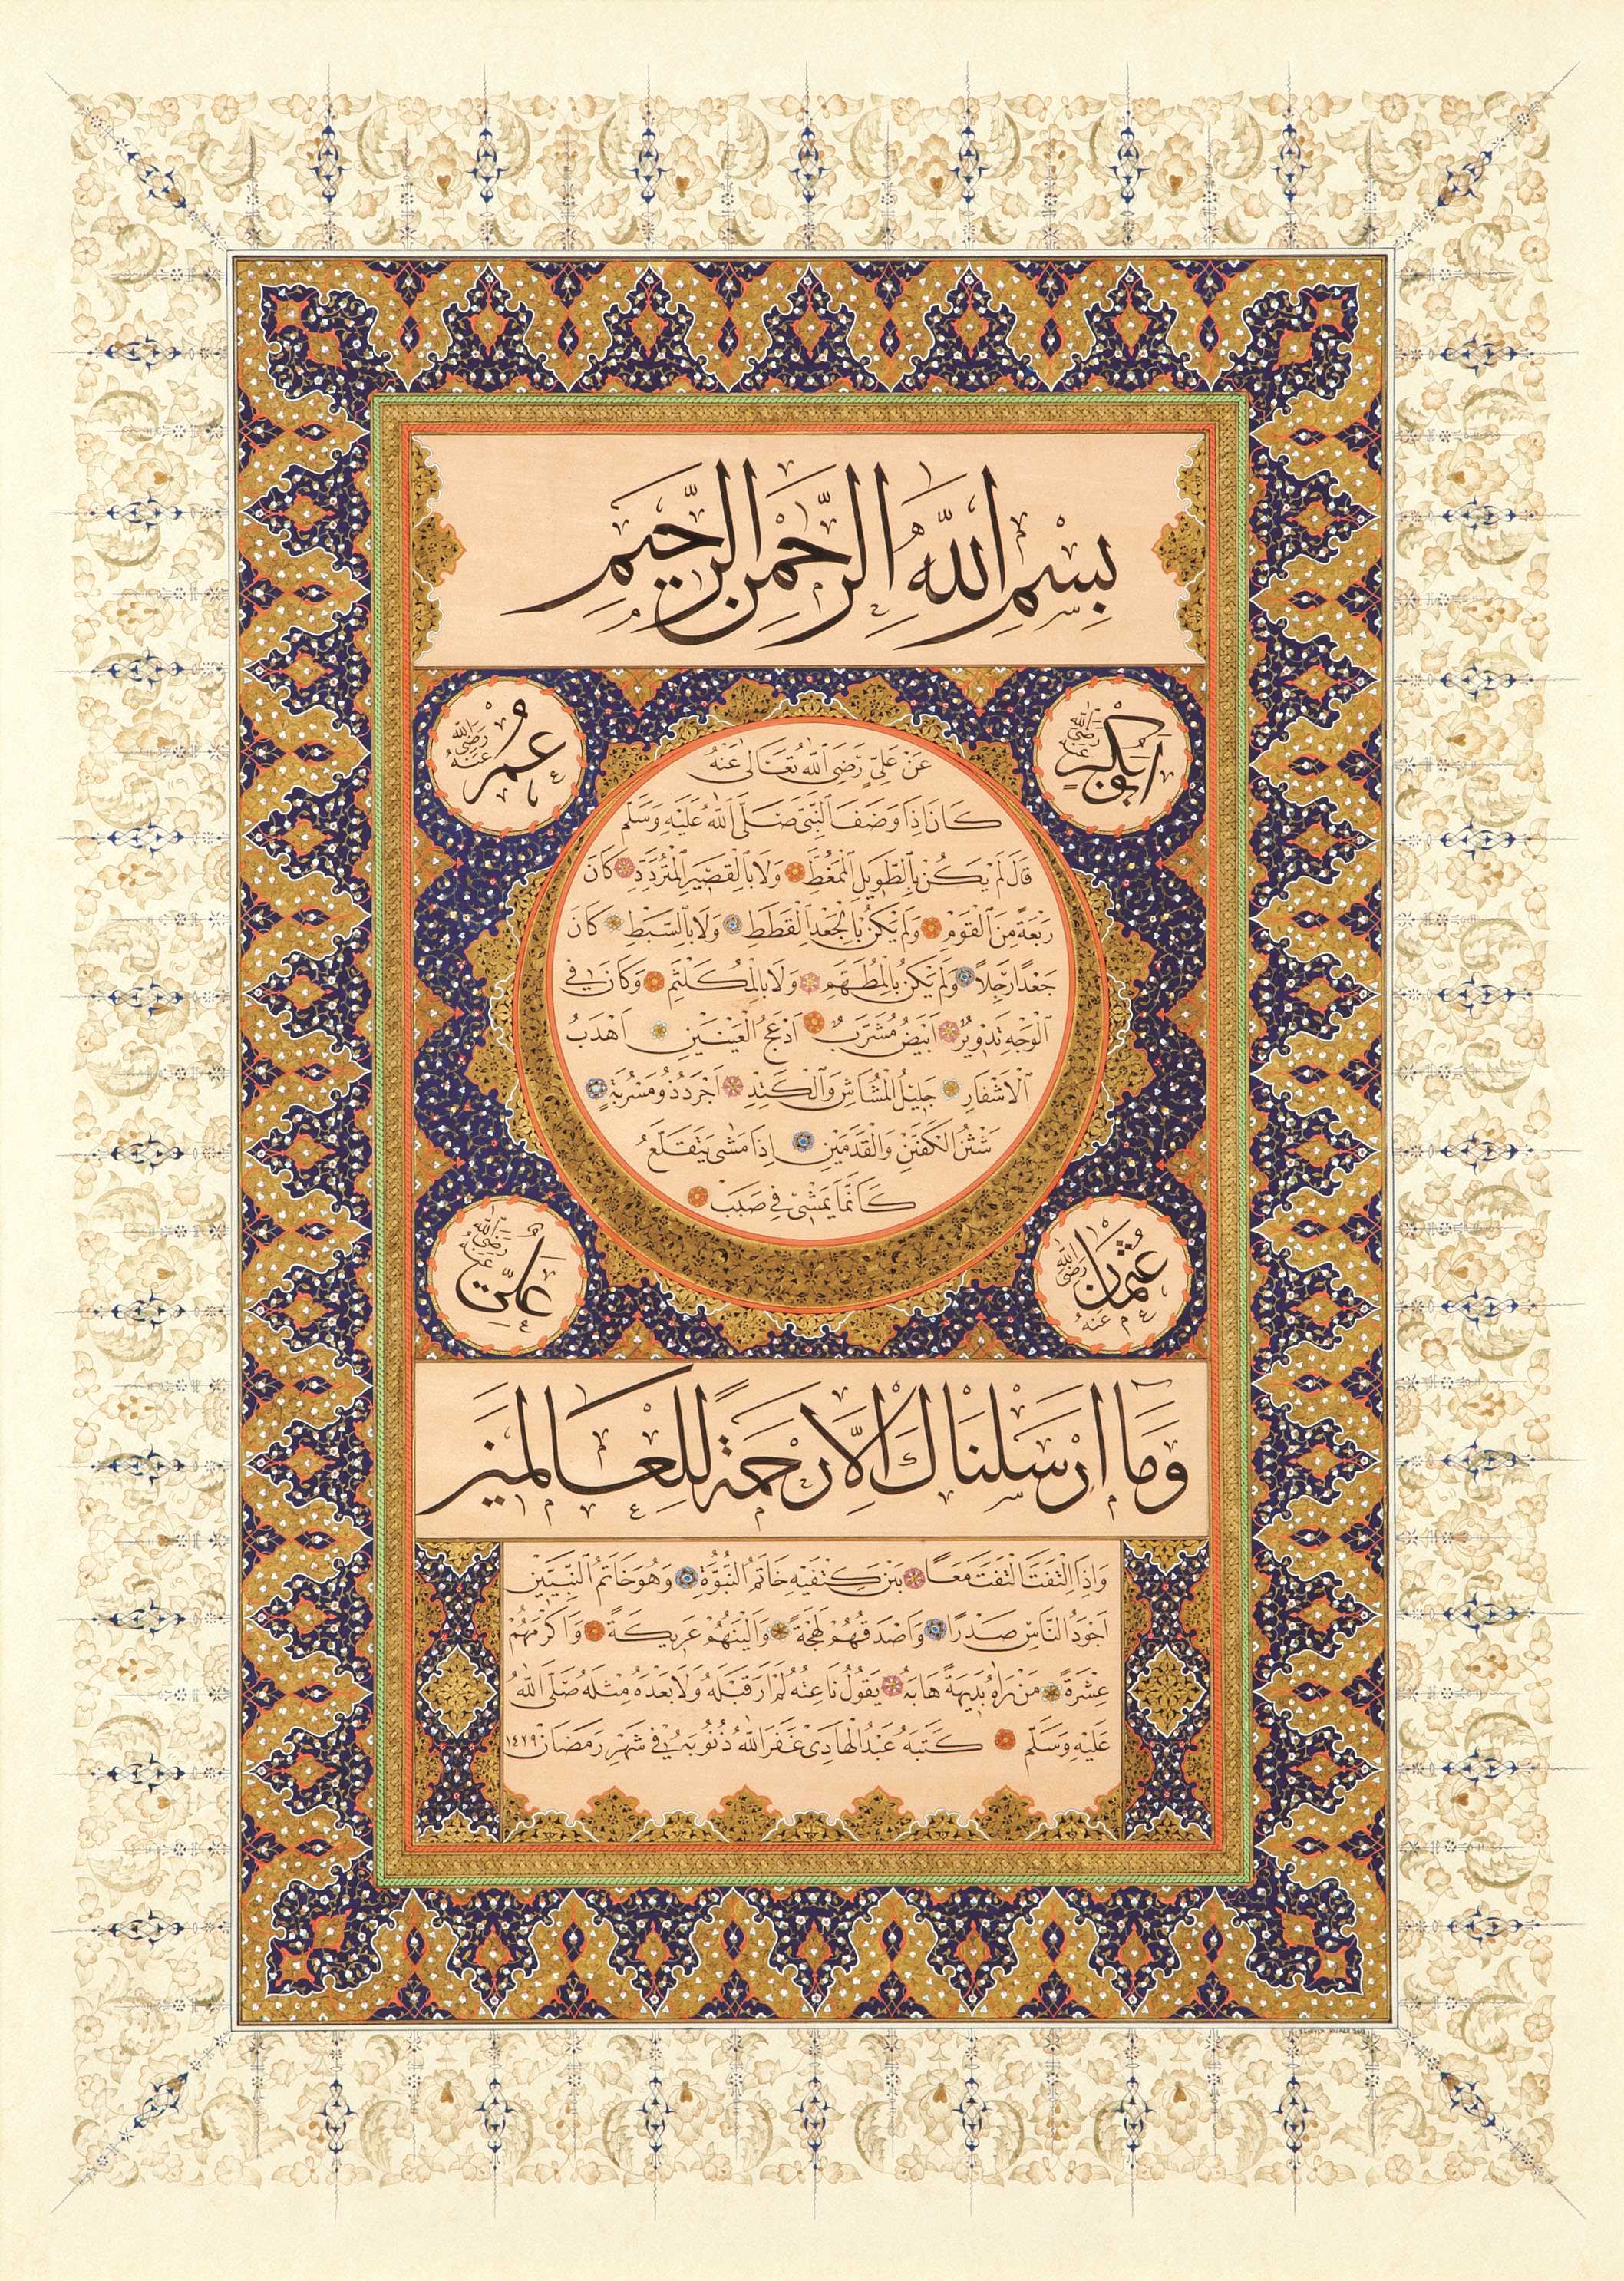 بِسْمِ اللّٰهِ الرَّحْمٰنِ الرَّحِيمِ
اَبُو بَكْرٍ رَضِيَ اللّٰهُ عَنْهُ
عُمَرُ رَضِيَ اللّٰهُ عَنْهُ
عَنْ عَلِيٍّ رَضِيَ اللّٰهُ تَعَالٰى عَنْهُ
كَانَ اِذَا وَصَفَ النَّبِيَّ صَلَّى اللّٰهُ عَلَيْهِ وَسَلَّمَ
قَالَ لَمْ يَكُنْ بِالطَّوِيلِ الْمُمَّغِطِ وَلَا بِالْقَصِيرِ الْمُتَرَدِّدِ كَانَ
رَبْعَةً مِنَ الْقَوْمِ وَلَمْ يَكُنْ بِالْجَعْدِ الْقَطَطِ وَلَا بِالسَّبْطِ كَانَ
جَعْدًا رَجِلًا وَلَمْ يَكُنْ بِالْمُطَهَّمِ وَلَا بِالْمُكَلْثَمِ وَكَانَ فِي
الْوَجْهِ تَدْوِيرٌ اَبْيَضُ مُشْرَبٌ اَدْعَجُ الْعَيْنَيْنِ اَهْدَبُ
الْاَشْفَارِ جَلِيلُ الْمُشَاشِ وَالْكَتِدِ اَجْرَدُ ذُو مَسْرُبَةٍ
شَثْنُ الْكَفَّيْنِ وَالْقَدَمَيْنِ اِذَا مَشٰى يَتَقَلَّعُ
كَاَنَّمَا يَمْشِي فِي صَبَبٍ
عُثْمَانُ رَضِيَ اللّٰهُ عَنْهُ
عَلِيٌّ رَضِيَ اللّٰهُ عَنْهُ
وَمَا اَرْسَلْنَاكَ اِلَّا رَحْمَةً لِلْعَالَمِينَ
وَاِذَا الْتَفَتَ الْتَفَتَ مَعًا بَيْنَ كَتِفَيْهِ خَاتَمُ النُّبُوَّةِ وَهُوَ خَاتَمُ النَّبِيِّينَ
اَجْوَدُ النَّاسِ صَدْرًا وَاَصْدَقُهُمْ لَهْجَةً وَاَلْيَنُهُمْ عَرِيكَةً وَاَكْرَمُهُمْ
عِشْرَةً مَنْ رَاٰهُ بَدِيهَةً هَابَهُ يَقُولُ نَاعِتُهُ لَمْ اَرَ قَبْلَهُ وَلَا بَعْدَهُ مِثْلَهُ صَلَّى اللّٰهُ
عَلَيْهِ وَسَلَّمَ كَتَبَهُ عَبْدُ الْهَادِي غَفَرَ اللّٰهُ ذُنُوبَهُ فِي شَهْرِ رَمَضَانَ ١٤٢٩